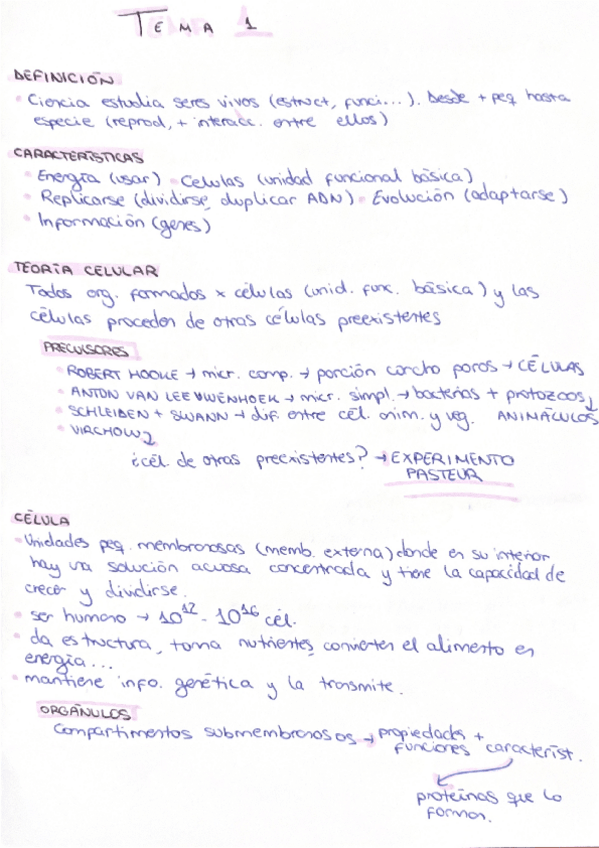 TEMA 1
DEFINICIÓN
Ciencia estudia seres vivos (estruct, funci...). Desde + peq hasta
especie (reprod, + interacc. entre ellos)
CARACTERÍSTICAS
Energía (usar) Celulas (unidad funcional básica)
Replicarse (dividirse, duplicar ADN) Evolución (adaptarse)
Información (genes)
TEORÍA CELULAR
Todos org. formados x células (unid. func. básica) y las
células proceden de otras células preexistentes
PRECURSORES
ROBERT HOOKE → micr. comp. → porción corcho poros → CÉLULAS
ANTON VAN LEEUWENHOEK → micr. simpl. → bacterias + protozoos ↓
SCHLEIDEN + SWANN → dif. entre cél. anim. y veg. ANIMÁCULOS
VIRCHOW
¿cél. de otras preexistentes? → EXPERIMENTO
PASTEUR
CÉLULA
Unidades peq. membranosas (memb. externa) donde en su interior
hay una solución acuosa concentrada y tiene la capacidad de
crecer y dividirse.
ser humano → 10^12 - 10^16 cél.
da estructura, toma nutrientes, convierten el alimento en
energía...
mantiene info. genética y la transmite.
ORGÁNULOS
Compartimentos submembranosos → propiedades +
funciones característ.
proteínas que lo
forman.